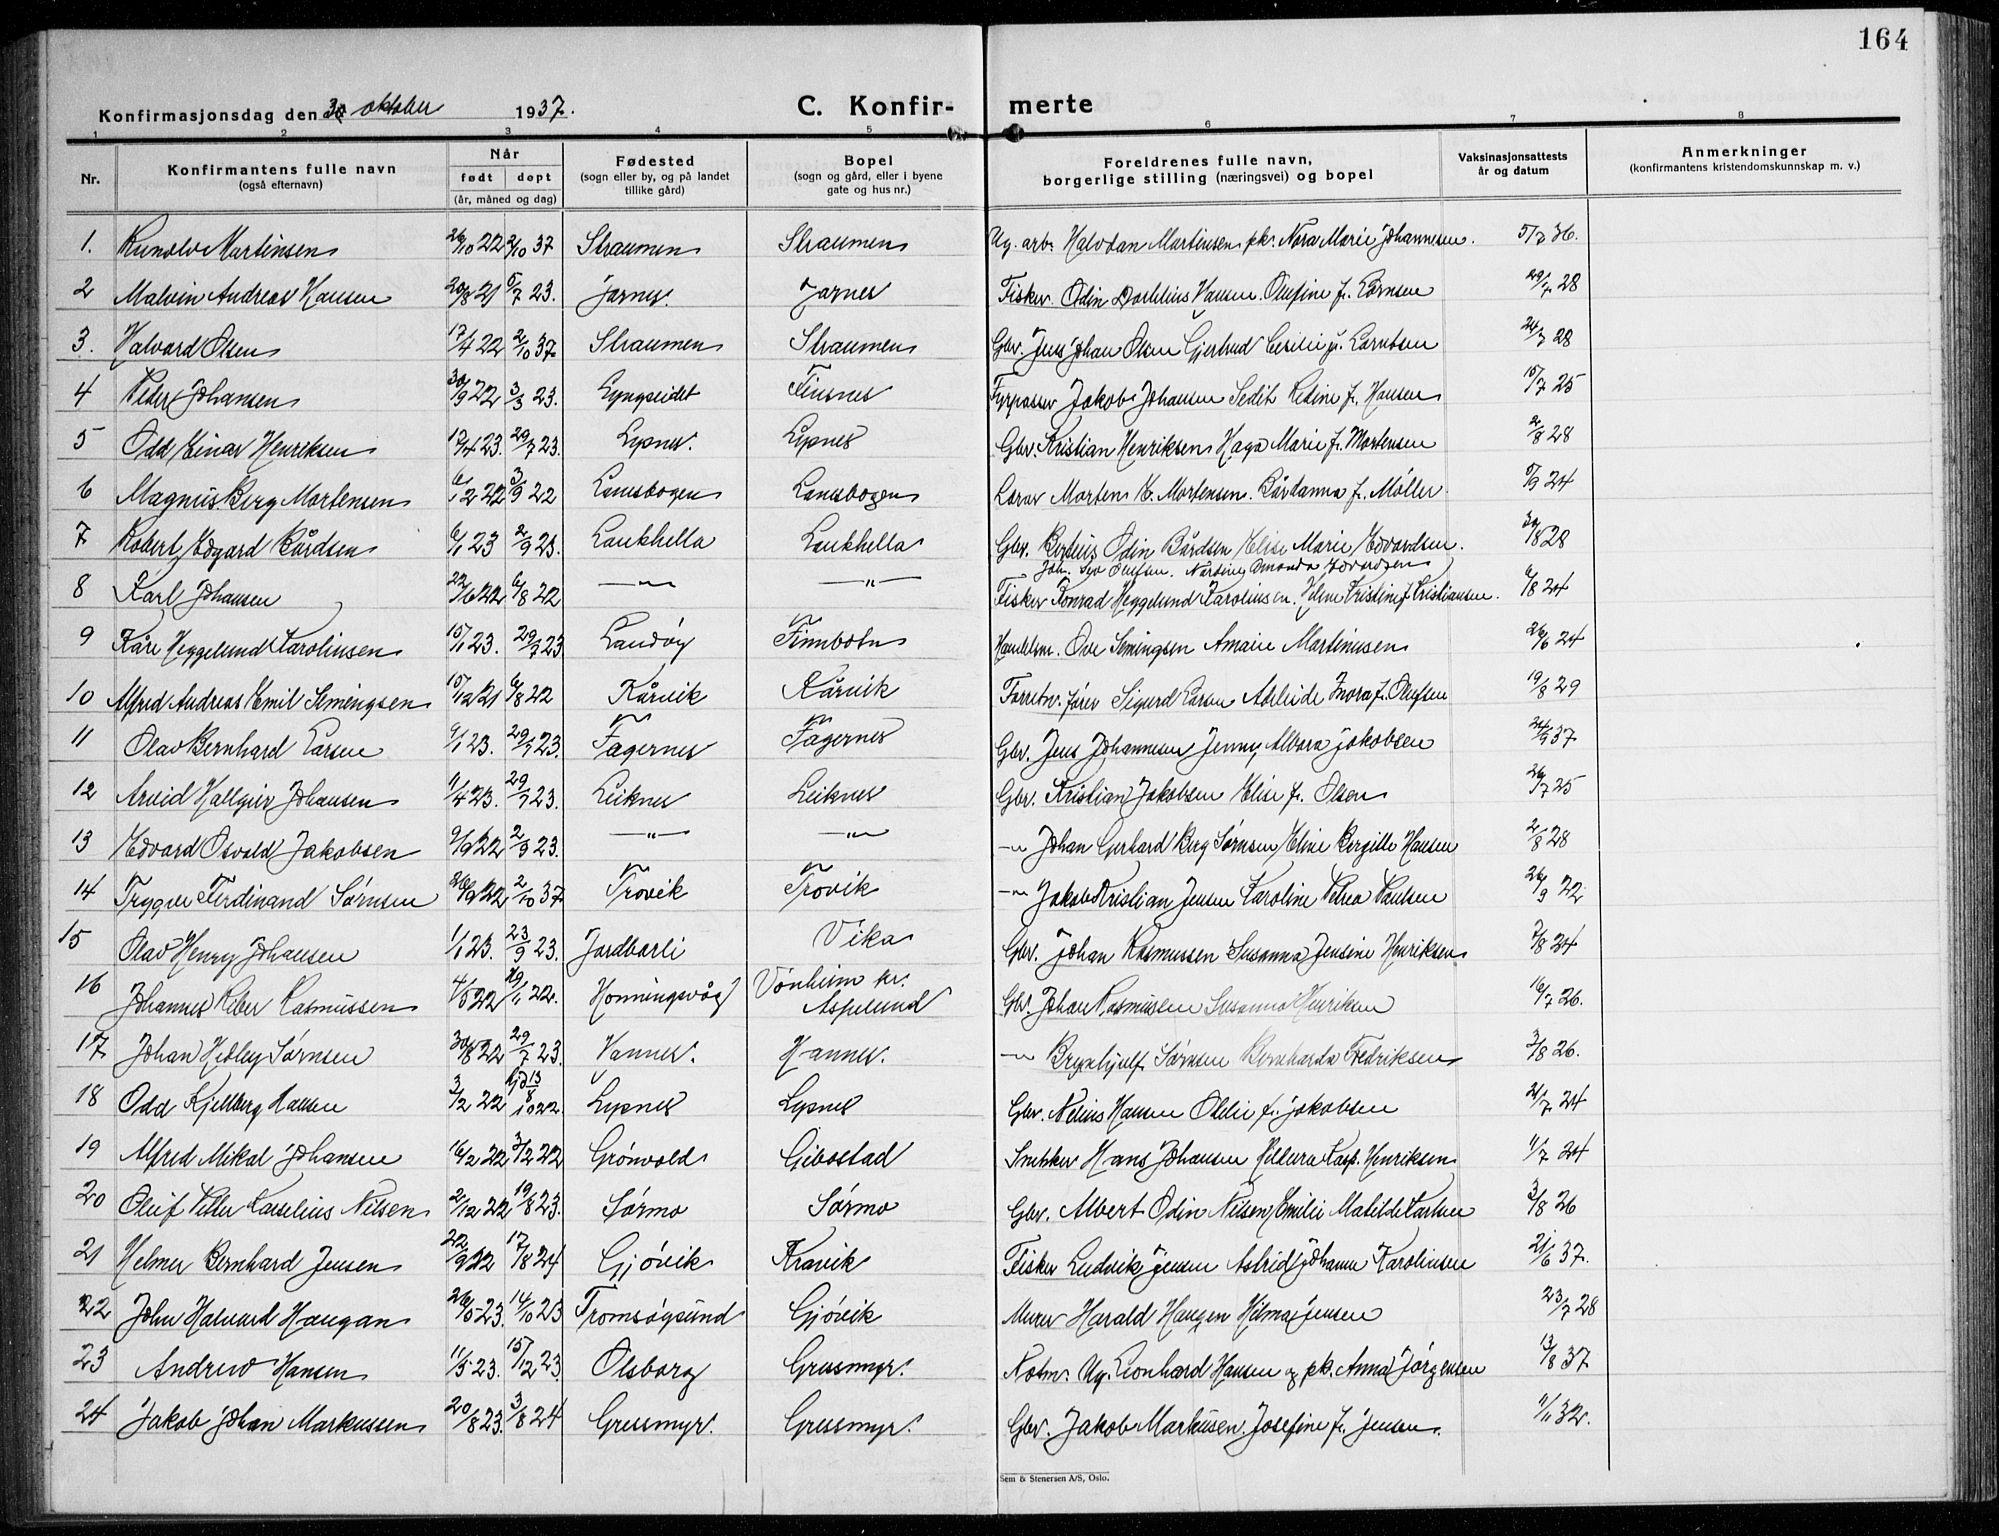 164
Konfirmasjonsdag den 3 oktober 1937.
C. Konfir- merte
1 2 3 4 5 6 7 8
Nr. Konfirmantens fulle navn (også efternavn) Når født døpt (år, måned og dag) Fødested (sogn eller by, og på landet tillike gård) Bopel (sogn og gård, eller i byene gate og hus nr.) Foreldrenes fulle navn, borgerlige stilling (næringsvei) og bopel Vaksinasjonsattests år og datum Anmerkninger (konfirmantens kristendomskunnskap m. v.)
1. Runolv Martinsen 26/10 22 2/10 37 Straumen Straumen Ug. arb. Halvdan Martinsen pk. Nora Marie Johannesen. 5/7 36.
2 Malvin Andreas Hansen 20/8 21 5/7 23. Jarnes. Jarnes Fisker. Odin Dorthius Hansen. Olufine f. Lornsen 29/7 28
3. Halvard Olsen 17/4 22 2/10 37 Straumen Straumen Gbr. Jens Johan Olsen Gjertrud Cecilie f. Berntsen 24/7 28
4 Peder Johansen 30/9 22 3/3 23. Lyngseidet Finsnes Fyrpasser Jakob Johansen Sedit Redine f. Hansen 15/7 25
5 Odd Einar Henriksen 17/4 23. 29/7 23. Lysnes. Lysnes Gbr. Kristian Henriksen Haga Marie f. Mortensen 2/8 28
6 Magnus Berg Mortensen 6/2 22 3/9 22 Lanesbogen Lanesbogen Lærer Morten H. Mortensen. Bårdanna f. Møller 5/9 24
7 Robert Edgard Bårdsen 6/1 23 2/9 23. Laukhella Laukhella Gbr. Bertius Odin Bårdsen Elise Marie Edvardsen. 30/8 28
Joh. Olufsen. Nardine Amanda Edvardsen
8 Karl Johansen 22/6 22 6/8 22 —"— —"— Fisker Konrad Heggelund Karolinsen. Helene Kristine f. Kristiansen. 6/8 24
9 Kåre Heggelund Karolinsen 15/1 23. 29/7 23 Sandøy Finnbotn Handelsm. Ove Semingsen Amalie Martinusen 26/6 24
10 Alfred Andreas Emil Semingsen 15/12 21 6/8 22 Kårvik Kårvik Forretn. fører Sigurd Larsen Adeleide Inora f. Olufsen 19/8 29
11 Olav Bernhard Larsen 6/1 23. 29/7 23. Fagernes Fagernes Gbr. Jens Johannesen Jenny Albora Jakobsen 24/9 37
12 Arvid Hallgeir Johansen 11/4 23. 29/7 23. Leiknes Leiknes Gbr. Kristian Jakobsen Elise f. Olsen 26/7 25
13 Edvard Osvald Jakobsen 9/9 22 2/9 23. —"— —"— —"— Johan Gerhard Berg Sørnsen Eline Bergitte Hansen 2/8 28
14 Trygve Ferdinand Sørnsen 26/9 22 2/10 37 Trovik Trovik —"— Jakob Kristian Jensen Karoline Petrea Paulsen 26/9 22
15 Olav Henry Johansen 1/1 23. 23/9 23. Jordbarli Vika Gbr. Johan Rasmussen Susanna Jensine Henriksen 7/8 24
16 Johannes Peder Rasmussen 4/5 22 19/11 22. Honningsvåg Vonheim pr. Aspelund Gbr. Johan Rasmussen Susanna Henriksen 16/7 26.
17 Johan Hedley Sørnsen 30/8 22 29/7 23. Vannes. Hannes. —"— Brynhjulf Sørnsen Bernharda Fredriksen 3/8 26.
18 Odd Kjellberg Hansen 3/2 22 Gjd 13/8 22. Lysnes Lysnes Gbr. Nelius Hansen Oldie f. Jakobsen 21/7 24
19 Alfred Mikal Johansen 16/2 22 3/12 22 Grønvold Gibostad Snekker Hans Johansen Helleva Kasp. Henriksen 11/7 24
20 Oluf Peller Kaselius Nilsen 2/12 22 19/8 23. Sørmo Sørmo Gbr. Albert Odin Nilsen Emilie Matilde Karlsen 3/8 26
21 Helmer Bernhard Jensen 22/9 22 17/8 24 Gjøvik Kravik Fisker Ludvik Jensen Astrid Johanne Karolinsen 21/6 37.
22 John Halvard Haugan 26/5 23. 14/10 23 Tromsøysund Gjøvik Murer Harald Haugen Hilma Jensen 23/7 28
23 Andrew Hansen 11/5 23. 15/12 23 Olsborg Gressmyr. Notm. Ug. Leonhard Hansen og pk. Anna Jørgensen 13/8 37
24 Jakob Johan Markussen 20/8 23. 3/8 24 Gressmyr. Gressmyr. Gbr. Jakob Markusen. Josefine f. Jensen. 11/11 32.
Sem & Stenersen A/S, Oslo.